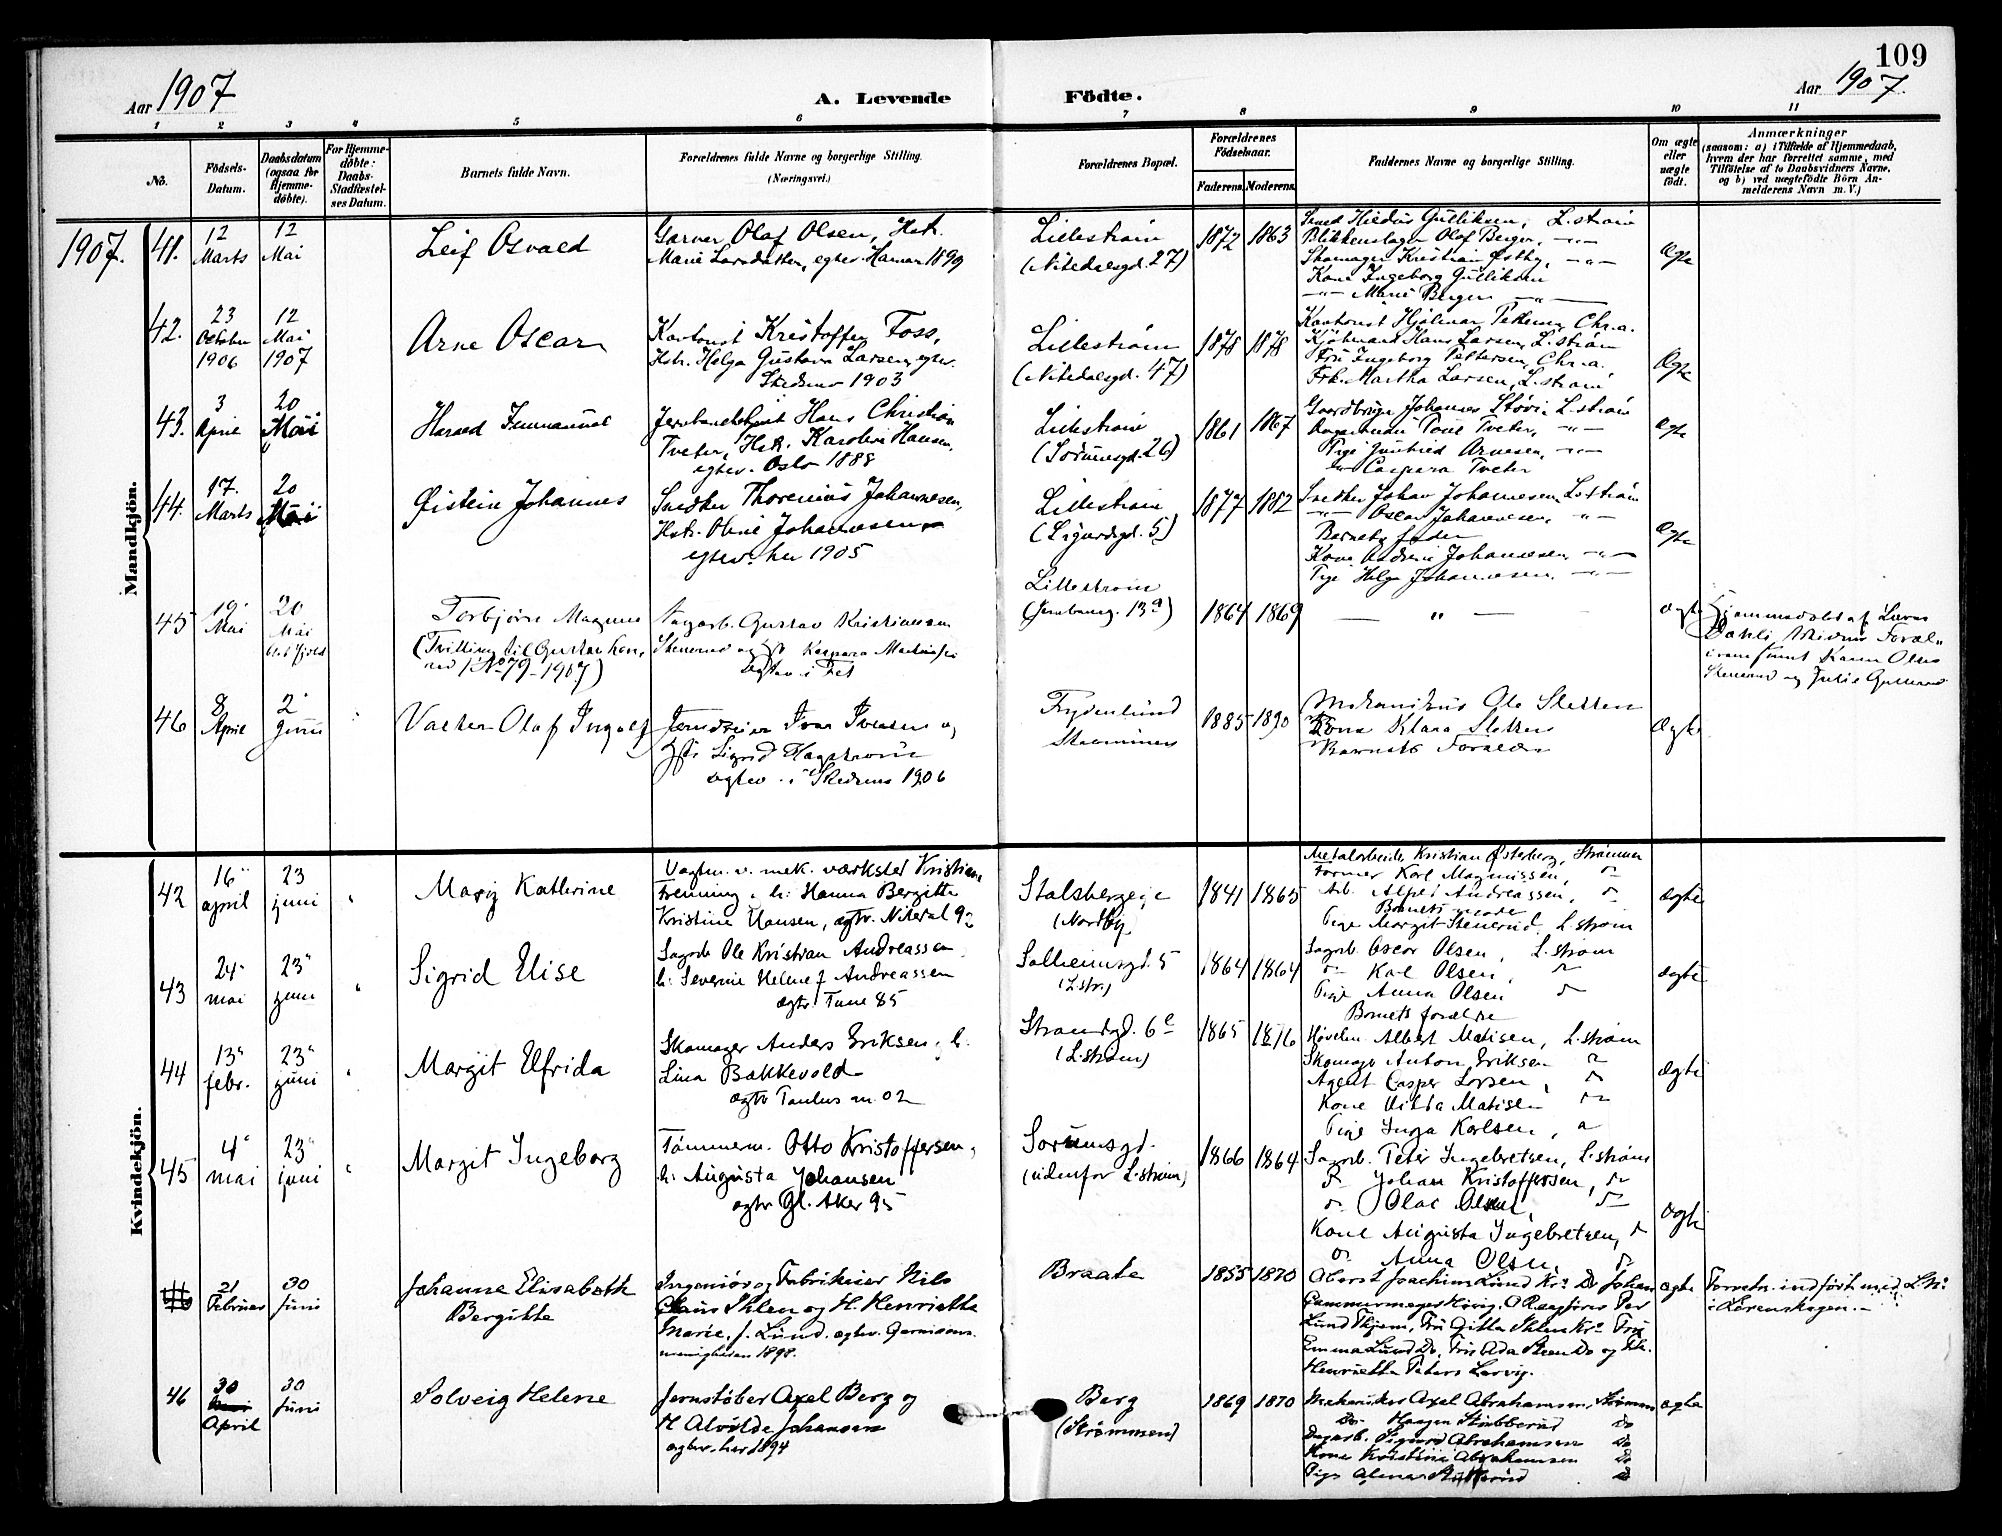 109
Aar 1907
A. Levende
Födte.
Aar 1907.
1 2 3 4 5 6 7 8 9 10 11
No.
Födsels-Datum.
Daabsdatum (ogsaa for Hjemme-döbte).
For Hjemme-döbte: Daabs-Stadfæstel-ses Datum.
Barnets fulde Navn.
Forældrenes fulde Navne og borgerlige Stilling. (Næringsvei.)
Forældrenes Bopæl.
Forældrenes Födselsaar.
Faderens. Moderens.
Faddernes Navne og borgerlige Stilling.
Om ægte eller uægte födt.
Anmærkninger
(saasom: a) i Tilfælde af Hjemmedaab, hvem der har forrettet samme, med Tilföielse af to Daabsvidners Navne, og b) ved uægtefödte Börn An-melderens Navn m. V.)
Mandkjön.
1907. 41. 12 Marts 12 Mai Leif Osvald
Garver Olaf Olsen, Hstr.
Marie Larsdatter, egtev. Hamar 1899
Lillestrøm
(Nitedalsgd. 27)
1872 1863
Smed Hildus Gulliksen, L.strøm
Blikkenslager Olaf Berger, -"-
Skomager Kristian Østby, -"-
Kone Ingeborg Gulliksen
-"- Marie Berger -"-
Ægte
42. 23 October 1906 12 Mai 1907 Arne Oscar
Kontorist Kristoffer Foss,
Hstr. Helga Gustava Larsen, egtev.
Skedsmo 1903
Lillestrøm
(Nitedalsgd. 47)
1878 1878
Kontorist Hjalmar Pettersen, Chr.a.
Kjøbmand Hans Larsen, L.strøm
Fru Ingeborg Pettersen, Chr.a.
Frk. Martha Larsen, L.strøm
Ægte
43. 3 April 20 Mai
Immanuel
Hans Christian
Tveter, Hstr. Karoline Hansen,
egtev. Oslo 1888
Lillestrøm
(Sørumsgd. 26)
1861 1867
Johannes Støvi L.strøm
Tveter, -"-
Pige Arnesen, -"-
-"- Caspara Tveter
Ægte
44. 17. Marts 20 Mai Øistein Johannes
Snedker Thorenius Johannesen,
Hstr. Oline Johannesen
egtev. her 1905
Lillestrøm
(Sigurdsgd. 5)
1877 1882
Snedker Johan Johannesen, L.strøm
-"- Oscar Johannesen, -"-
Barnets fader
Kone Andrine Johannesen, -"-
Pige Helga Johannesen, -"-
Ægte
45 19 Mai 20 Mai
Torbjørn Magnus
(Tvilling til Gustav
No 79 - 1907)
Gustav Kristiansen
Stenerud og H. Kaspara
Ægtev. i Fet
Lillestrøm
(Jernbaneg. 13a)
1864 1869
"
Ægte
Hjemmedøbt af
Karen Olsen
Stenerud og Julie
46 8 April 2 Juni Valter Olaf Ingolf
Ivar Iversen og
H. Sigrid Hagstrøm
Ægtev. i Skedsmo 1906
Frydenlund
Strømmen
1885 1890
Mekanikus Ole Sletten
Kone Klara Sletten
Barnets Forældre
Ægte
Kvindekjön.
42 16 april 23 juni " Mary Kathrine
Vagtm. v. mek. værksted Kristian
Frenning, h: Hanna Bergitte
Kristine Hansen, ægtv. Niteral 92
Stalsbergeie
(Nordby)
1841 1865
Metalarbeider Kristian Østerberg, Strømmen
Former Karl Magnussen, "
Arb. Alfred Andreassen, "
Barnets mode
Pige Margit Stenerud, L.strøm
ægte
43 24 mai 23 juni " Sigrid Elise
Sagarb. Ole Kristian Andreassen,
h: Severine Helene f. Andreassen
ægtv. Tune 85
Solheimsgd. 5
(L.str.)
1864 1864
Sagarb. Oscar Olsen, L.strøm
" Karl Olsen, "
Pige Anna Olsen "
Barnets forældre
ægte
44 13 febr. 23 juni " Margit Elfrida
Skomager Anders Eriksen, h:
Lina Bakkevold
ægtv. 02
Strandgd. 6c
(L.strøm)
1865 1876
Høvlem. Albert Matisen, L.strøm
Skomager Anton Eriksen "
Agent Casper Larsen, "
Kone Hilda Matisen "
Pige Inga Karlsen, "
ægte
45 4 mai 23 juni " Margit Ingeborg
Tømmerm. Otto Kristoffersen,
h: Augusta Johansen
ægtv. Gl. Aker 95
Sørumsgd.
(udenfor L.strøm)
1866 1864
Sagarb. Peter Ingebretsen, L.strøm
" Johan Kristoffersen, "
" Olaf Olsen, "
Kone Augusta Ingebretsen, "
" Anna Olsen, "
ægte
21 Februar 30 Juni
Johanna Elisabeth
Bergitte
Ingeniør og Fabrikeier Nils
Claus Ihlen og H. Henriette
Marie, f. Lund. ægtev. Garnisons-
menigheden 1898.
Braate
1855 1870
Oberst Joachim Lund Kra Do Johan
Gammermeyer Høvig, O.Ragfører Per
Lund Skjem, Fru Gitta Ihlen Kra Fru
Emma Lund Do, Fru Ada Ihlen Do og Frk.
Henriette Peters Larvig.
ægte
Forretn. indført med L.No
i Lørenskogen.
46 30 April 30 Juni Solveig Helene
Jernstøber Axel Berg og
H Alvilde Johansen
ægtev. her 1894
Berg
(Strømmen)
1869 1870
Mekaniker Axel Abrahamsen, Strømmen
Do Haagen Stubberud Do
Dagarb. Sigurd Abrahamsen Do
Kone Kristine Abrahamsen Do
Pige Alma Do
ægte